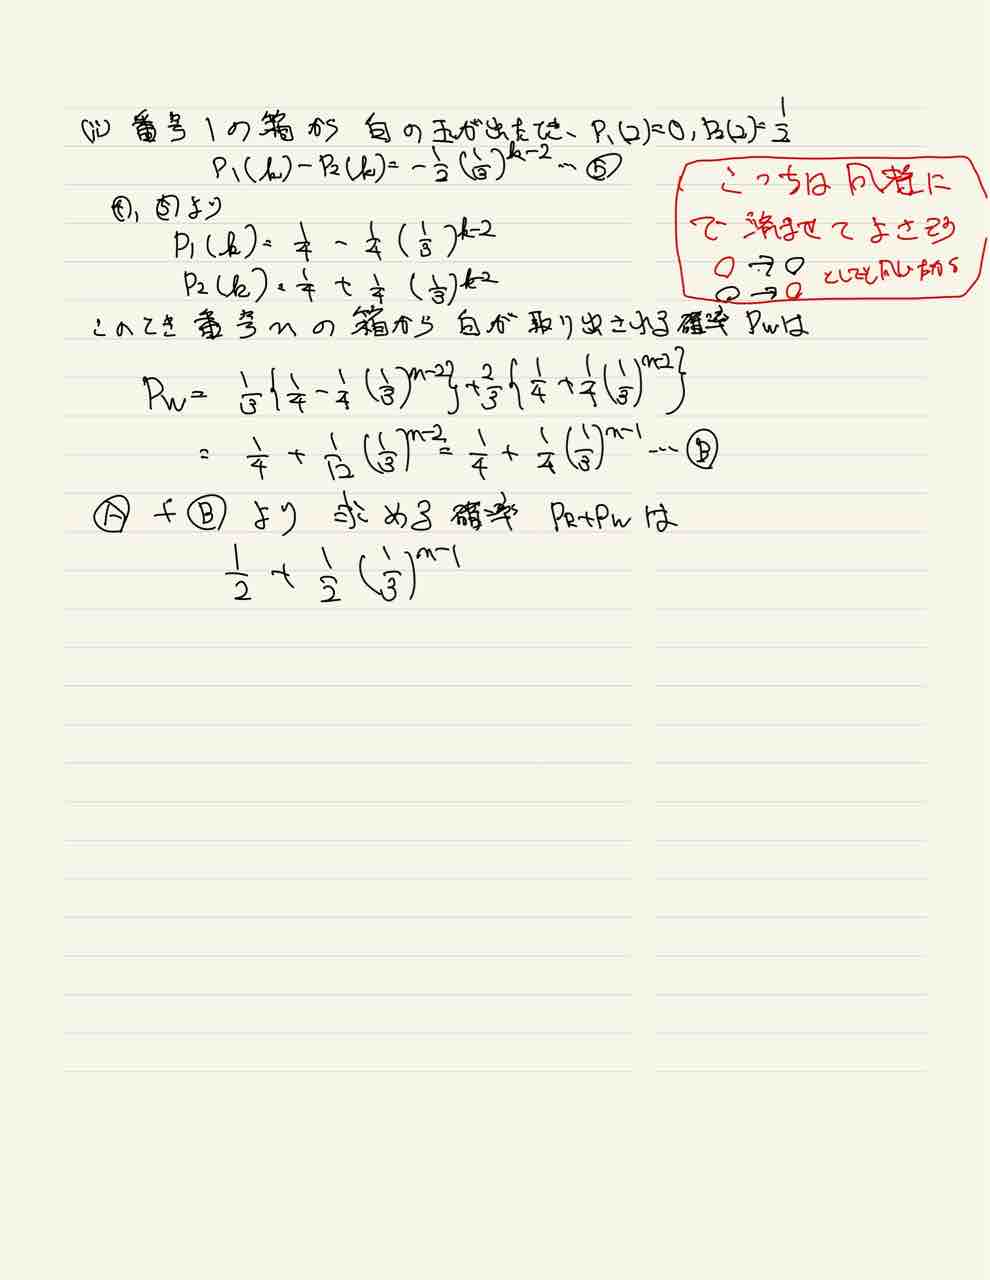 (ii) 番号1の箱から 白の玉が出たとき、P₁(2)=0, P₂(2)=1/2
P₁(k)-P₂(k)=-1/2(1/3)^{k-2} … ⑤
④, ⑤より
P₁(k)=1/4-1/4(1/3)^{k-2}
P₂(k)=1/4+1/4(1/3)^{k-2}
こっちは同様に
で済ませてよさそう
○→○
○→○
としても同じだから
このとき 番号nの箱から 白が取り出される確率 P_Wは
P_W=1/3{1/4-1/4(1/3)^{n-2}}+2/3{1/4+1/4(1/3)^{n-2}}
=1/4+1/12(1/3)^{n-2}=1/4+1/4(1/3)^{n-1} … Ⓑ
Ⓐ+Ⓑより 求める確率 P_R+P_W は
1/2+1/2(1/3)^{n-1}